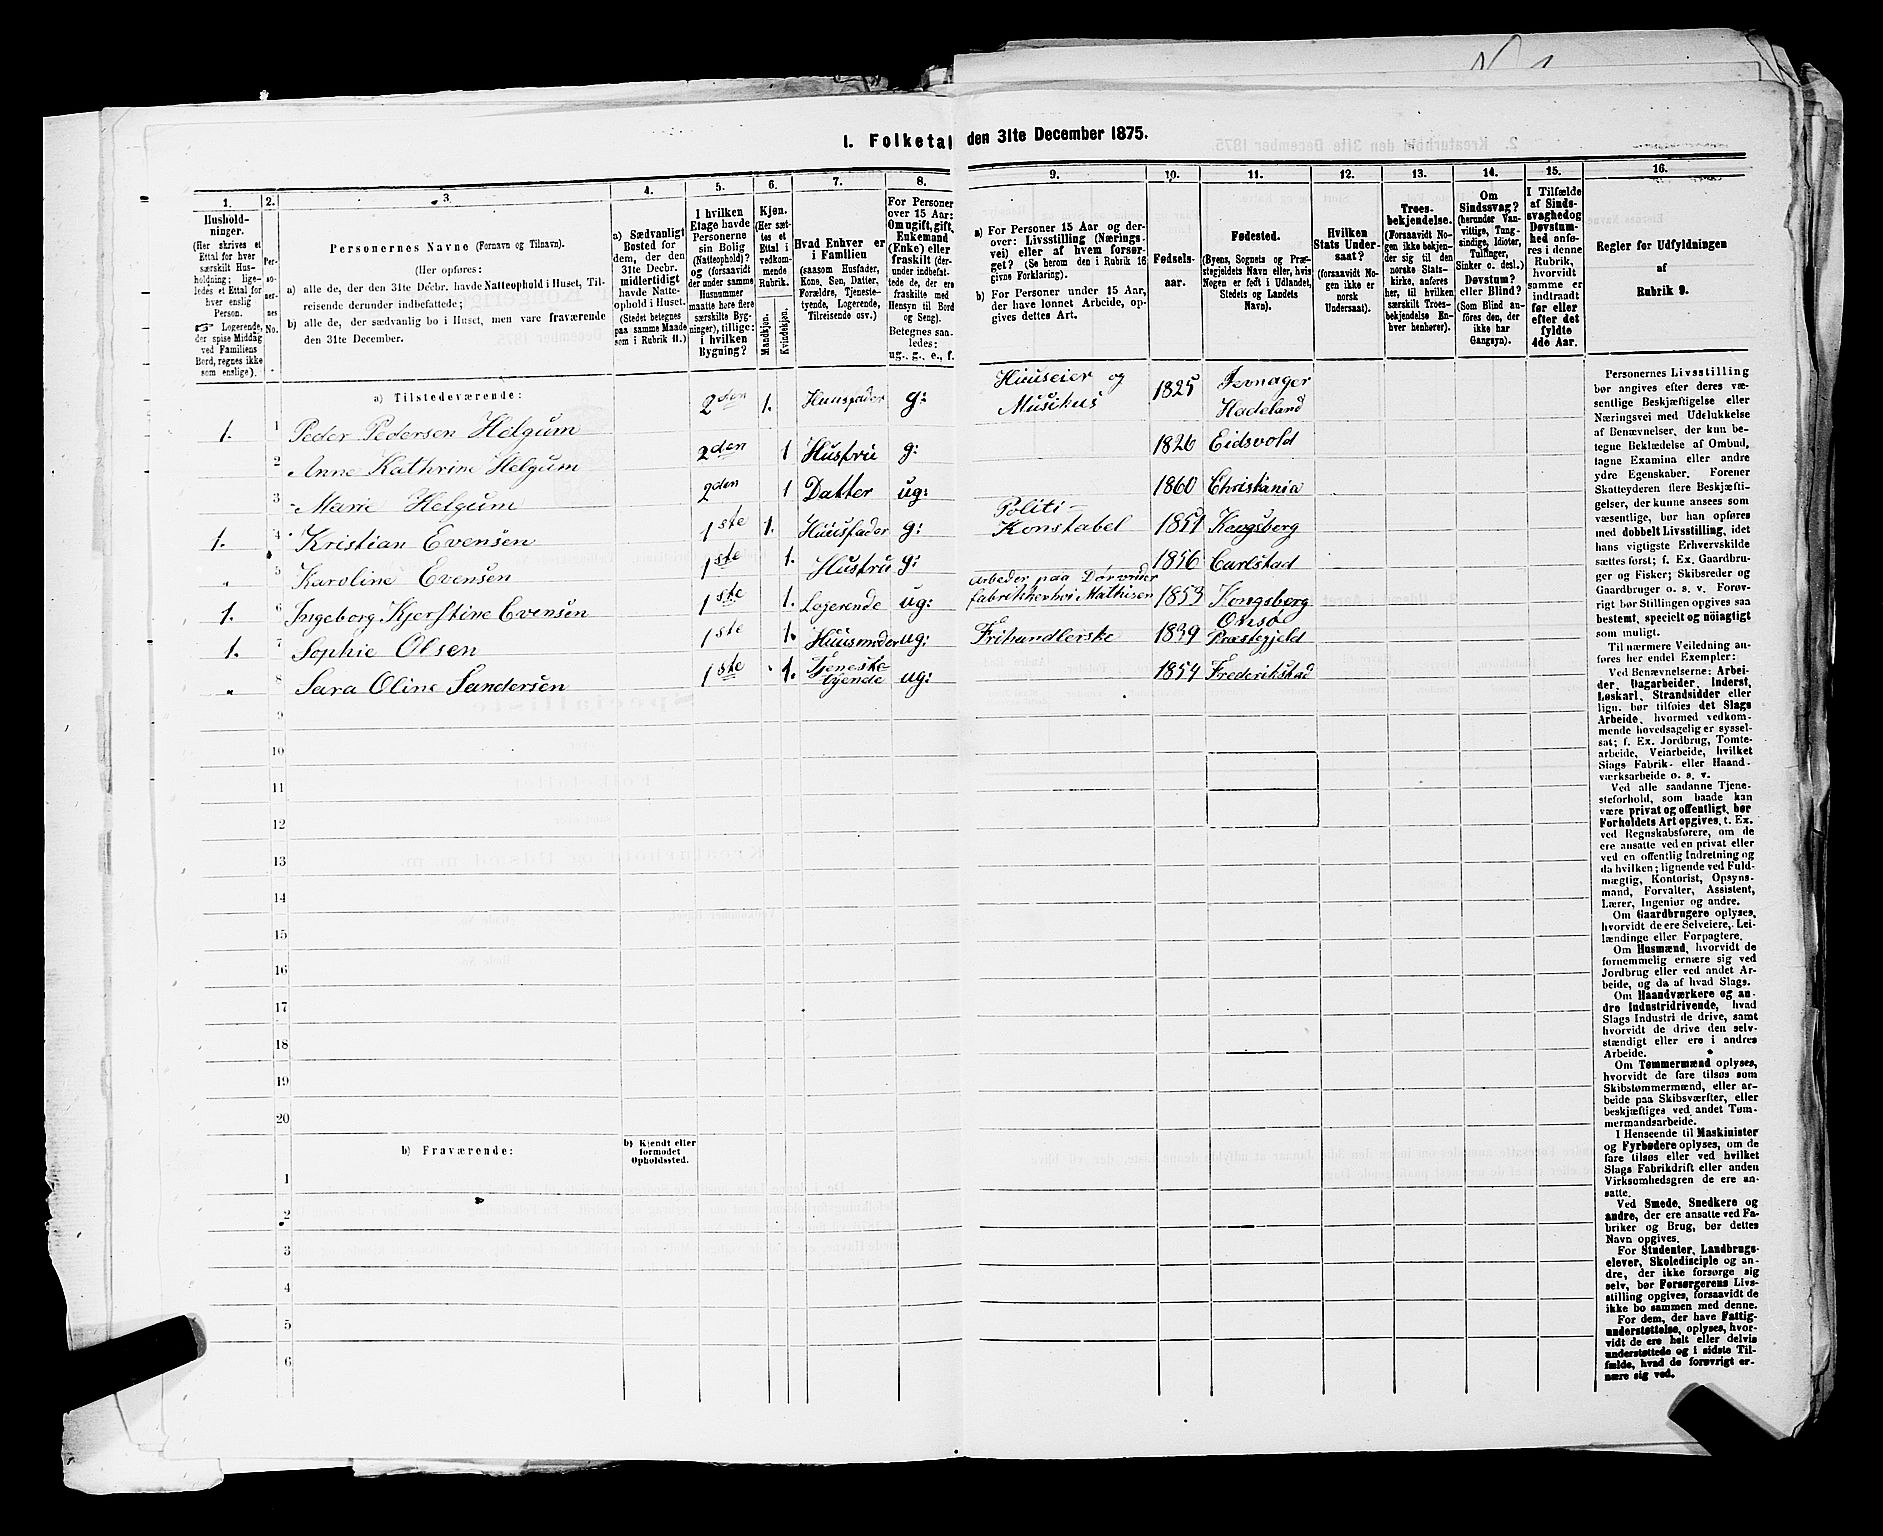 I. Folketal den 31te December 1875.
1. 2. 3. 4. 5. 6. 7. 8. 9. 10. 11. 12. 13. 14. 15. 16.
Husholdninger.
(Her skrives et
Ettal for hver
særskilt Husholdning; ligeledes et Ettal for
hver enslig
Person.
☞ Logerende,
der spise Middag
ved Familiens
Bord, regnes ikke
som enslige).
Personernes No.
Personernes Navne (Fornavn og Tilnavn).
(Her opføres:
a) alle de, der den 31te Decbr. havde Natteophold i Huset, Tilreisende derunder indbefattede;
b) alle de, der sædvanlig bo i Huset, men vare fraværende
den 31te December.
a) Sædvanligt
Bosted for
dem, der den
31te Decbr.
midlertidigt
havde Natteophold i Huset.
(Stedet betegnes
paa samme Maade
som i Rubrik 11.)
I hvilken
Etage havde
Personerne
sin Bolig
(Natteophold)?
og (forsaavidt
der under samme
Husnummer
maatte høre flere
særskilte Bygninger), tillige:
i hvilken
Bygning?
Kjøn.
(Her sættes et
Ettal i
vedkommende
Rubrik.
Mandkjøn.
Kvindekjøn.
Hvad Enhver er
i Familien
(saasom Husfader,
Kone, Søn, Datter,
Forældre, Tjenestetyende, Logerende,
Tilreisende osv.)
For Personer
over 15 Aar:
Om ugift, gift,
Enkemand
(Enke) eller
fraskilt (derunder indbefattede de, der ere
fraskilte med
Hensyn til Bord
og Seng).
Betegnes saaledes:
ug., g., e., f.
a) For Personer 15 Aar og derover: Livsstilling (Næringsvei) eller af hvem forsørget? (Se herom den i Rubrik 16
givne Forklaring).
b) For Personer under 15 Aar,
der have lønnet Arbeide, opgives dettes Art.
Fødselsaar.
Fødested.
(Byens, Sognets og Præstegjeldets Navn eller, hvis
Nogen er født i Udlandet,
Stedets og Landets
Navn).
Hvilken
Stats Undersaat?
(forsaavidt Nogen ikke er
norsk
Undersaat).
Troesbekjendelse.
(Forsaavidt Nogen ikke bekjender sig til den
norske Statskirke, anføres
her, til hvilken
særskilt Troesbekjendelse Enhver henhører).
Om
Sindssvag?
(herunder Vanvittige, Tungsindige, Idioter,
Tullinger,
Sinker o. desl.)
Døvstum?
eller Blind?
(Som Blind anføres den, der
ikke har
Gangsyn).
I Tilfælde
af Sindssvaghed og
Døvstumhed anføres i denne
Rubrik,
hvorvidt
samme er
indtraadt
før eller
efter det
fyldte
4de Aar.
Regler for Udfyldningen
af
Rubrik 9.
a) Tilstedeværende:
1. 1 Peder Pedersen Helgum 2den 1. Huusfader g: Huuseier og Musikus 1825 Jevnager Hadeland
2 Anne Kathrine Helgum 2den 1 Hustru g: 1826 Eidsvold
3 Marie Helgum 2den 1 Datter ug: 1860 Christania
1. 4 Kristian Evensen 1ste 1. Huusfader g: Politi-Konstabel 1851 Kongsberg
" 5 Karoline Evensen 1ste 1. Hustru g: 1856 Carlstad
1. 6 Ingeborg Kjerstine Evensen 1ste 1. Logerende ug: Arbeder paa Dørvrider fabrikken hos Mathisen 1853 Kongsberg
1. 7 Sophie Olsen 1ste 1. Huusmoder ug: Frihandlerske 1839 Præstegjeld
" 8 Sara Oline Sandersen 1ste 1. Tjenestetyende ug: 1854 Frederikstad
9
10
11
12
13
14
15
16
17
18
19
20
b) Fraværende:
b) Kjendt eller
formodet
Opholdssted.
1
2
3
4
5
6
Personernes Livsstilling
bør angives efter deres væsentlige Beskjæftigelse eller
Næringsvei med Udelukkelse
af Benævnelser, der kun betegne Beklædelse af Ombud,
tagne Examina eller andre
ydre Egenskaber. Forener
Skatteyderen flere Beskjæftigelser, der kunne ansees som
væsentlige, bør han opføres
med dobbelt Livsstilling, idet
hans vigtigste Erhvervskilde
sættes først; f. Ex. Gaardbruger og Fisker; Skibsreder og
Gaardbruger o. s. v. Forøvrigt bør Stillingen opgives saa
bestemt, specielt og nøiagtigt
som muligt.
Til nærmere Veiledning anføres her endel Exempler:
Ved Benævnelserne: Arbeider, Dagarbeider, Inderst,
Løskarl, Strandsidder eller
lign. bør tilføies det Slags
Arbeide, hvormed vedkommende hovedsagelig er sysselsat; f. Ex. Jordbrug, Tomtearbeide, Veiarbeide, hvilket
Slags Fabrik- eller Haandværksarbeide o. s. v.
Ved alle saadanne Tjenesteforhold, som baade kan
være privat og offentligt, bør
Forholdets Art opgives, t. Ex.
ved Regnskabsførere, om de
ere ansatte ved en privat eller
ved en offentlig Indretning og
da hvilken; lignende ved Fuldmægtig, Kontorist, Opsynsmand, Forvalter, Assistent,
Lærer, Ingeniør og andre.
Om Gaardbrugere oplyses,
hvorvidt de ere Selveiere, Leilændinge eller Forpagtere.
Om Husmænd, hvorvidt de
fornemmelig ernære sig ved
Jordbrug eller ved andet Arbeide, og da af hvad Slags.
Om Haandværkere og andre Industridrivende, hvad
Slags Industri de drive, samt
hvorvidt de drive den selvstændigt eller ere i andres
Arbeide.
Om Tømmermænd oplyses,
hvorvidt de fare tilsøs som
Skibstømmermænd, eller arbeide paa Skibsværfter, eller
beskjæftiges ved andet Tømmermandsarbeide.
I Henseende til Maskinister
og Fyrbødere oplyses, om de
fare tilsøs eller ved hvilket
Slags Fabrikdrift eller anden
Virksomhedsgren de ere ansatte.
Ved Smede, Snedkere og
andre, der ere ansatte ved Fabriker og Brug, bør dettes
Navn opgives.
For Studenter, Landbrugselever, Skoledisciple og andre, der ikke forsørge sig
selv, bør Forsørgerens Livsstilling opgives, forsaavidt de
ikke bo sammen med denne.
For dem, der have Fattigunderstøttelse, oplyses, hvorvidt de ere helt eller delvis
understøttede og i sidste Tilfælde, hvad de forøvrigt ernære sig ved.